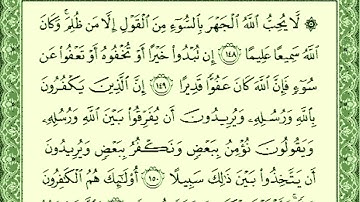 ۞ لَّا يُحِبُّ ٱللَّهُ ٱلْجَهْرَ بِٱلسُّوٓءِ مِنَ ٱلْقَوْلِ إِلَّا مَن ظُلِمَ ۚ وَكَانَ
ٱللَّهُ سَمِيعًا عَلِيمًا ١٤٨ إِن تُبْدُوا۟ خَيْرًا أَوْ تُخْفُوهُ أَوْ تَعْفُوا۟ عَن
سُوٓءٍ فَإِنَّ ٱللَّهَ كَانَ عَفُوًّا قَدِيرًا ١٤٩ إِنَّ ٱلَّذِينَ يَكْفُرُونَ
بِٱللَّهِ وَرُسُلِهِۦ وَيُرِيدُونَ أَن يُفَرِّقُوا۟ بَيْنَ ٱللَّهِ وَرُسُلِهِۦ
وَيَقُولُونَ نُؤْمِنُ بِبَعْضٍ وَنَكْفُرُ بِبَعْضٍ وَيُرِيدُونَ
أَن يَتَّخِذُوا۟ بَيْنَ ذَٰلِكَ سَبِيلًا ١٥٠ أُو۟لَـٰٓئِكَ هُمُ ٱلْكَـٰفِرُونَ